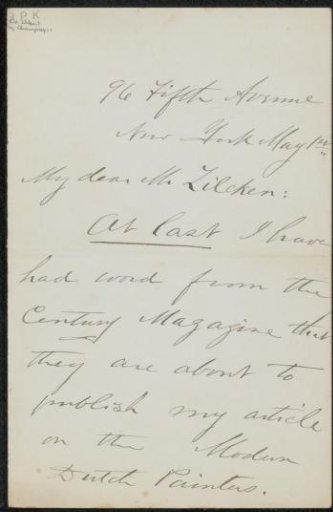 P K
96 Fifth Avenue
New York May 1st
My dear Mr Zilcken:
At last I have
had word from the
Century Magazine that
they are about to
publish my article
on the Modern
Dutch Painters.